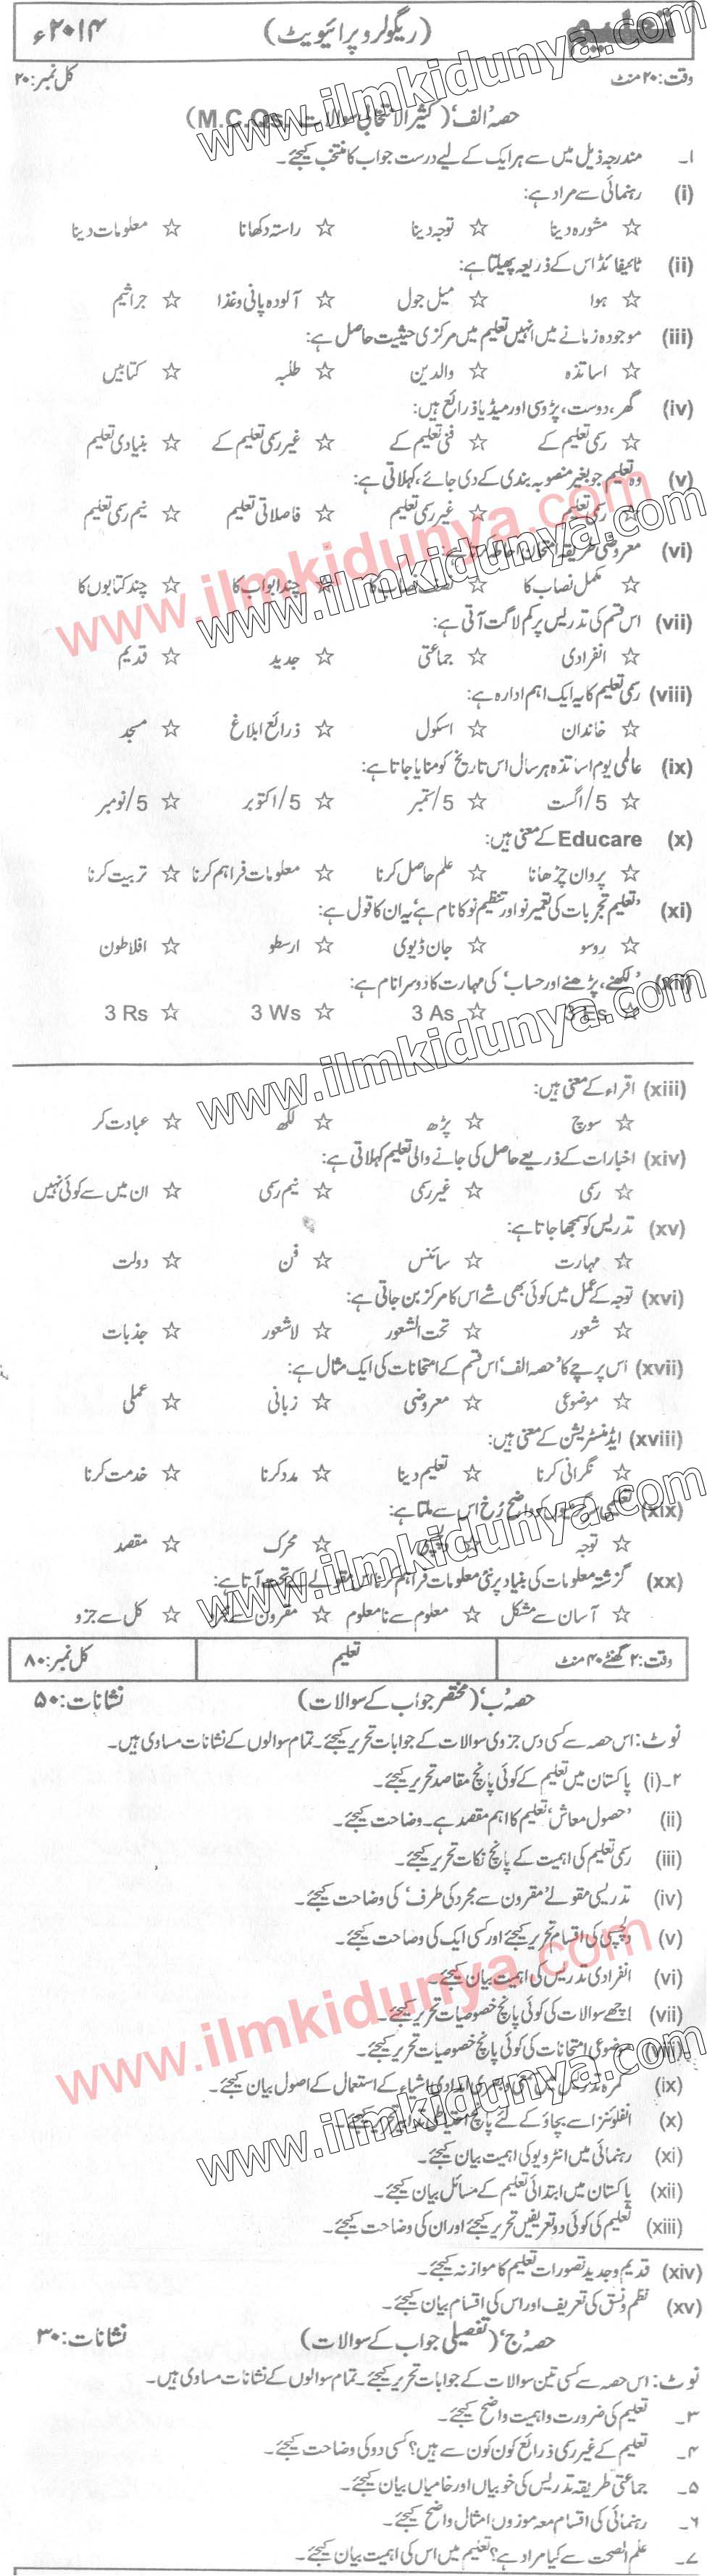 تعلیم (ریگولر و پرائیویٹ) ۲۰۱۴ء
وقت: ۲۰ منٹ کل نمبر: ۲۰
حصہ 'الف' (کثیر الانتخابی سوالات M.C.Qs.)
۱۔ مندرجہ ذیل میں سے ہر ایک کے لیے درست جواب کا منتخب کیجئے۔
(i) رہنمائی سے مراد ہے:
☆ مشورہ دینا ☆ توجہ دینا ☆ راستہ دکھانا ☆ معلومات دینا
(ii) ٹائیفائڈ اس کے ذریعہ پھیلتا ہے:
☆ ہوا ☆ میل جول ☆ آلودہ پانی و غذا ☆ جراثیم
(iii) موجودہ زمانے میں انہیں تعلیم میں مرکزی حیثیت حاصل ہے:
☆ اساتذہ ☆ والدین ☆ طلبہ ☆ کتابیں
(iv) گھر، دوست، پڑوسی اور میڈیا ذرائع ہیں:
☆ رسمی تعلیم کے ☆ فنی تعلیم کے ☆ غیر رسمی تعلیم کے ☆ بنیادی تعلیم
(v) وہ تعلیم جو بغیر منصوبہ بندی کے دی جائے، کہلاتی ہے:
☆ رسمی تعلیم ☆ غیر رسمی تعلیم ☆ فاصلاتی تعلیم ☆ نیم رسمی تعلیم
(vi) معروضی طریقہ امتحان احاطہ کرتا ہے:
☆ مکمل نصاب کا ☆ نصف نصاب کا ☆ چند ابواب کا ☆ چند کتابوں کا
(vii) اس قسم کی تدریس پر کم لاگت آتی ہے:
☆ انفرادی ☆ جماعتی ☆ جدید ☆ قدیم
(viii) رسمی تعلیم کا یہ ایک اہم ادارہ ہے:
☆ خاندان ☆ اسکول ☆ ذرائع ابلاغ ☆ مسجد
(ix) عالمی یوم اساتذہ ہر سال اس تاریخ کو منایا جاتا ہے:
☆ 5/اگست ☆ 5/ستمبر ☆ 5/اکتوبر ☆ 5/نومبر
(x) Educare کے معنی ہیں:
☆ پروان چڑھانا ☆ علم حاصل کرنا ☆ معلومات فراہم کرنا ☆ تربیت کرنا
(xi) 'تعلیم تجربات کی تعمیر نو اور تنظیم نو کا نام ہے' یہ ان کا قول ہے:
☆ روسو ☆ جان ڈیوی ☆ ارسطو ☆ افلاطون
(xii) 'لکھنے، پڑھنے اور حساب' کی مہارت کا دوسرا نام ہے:
☆ 3 Es ☆ 3 As ☆ 3 Ws ☆ 3 Rs
(xiii) اقراء کے معنی ہیں:
☆ سوچ ☆ پڑھ ☆ لکھ ☆ عبادت کر
(xiv) اخبارات کے ذریعے حاصل کی جانے والی تعلیم کہلاتی ہے:
☆ رسمی ☆ غیر رسمی ☆ نیم رسمی ☆ ان میں سے کوئی نہیں
(xv) تدریس کو سمجھا جاتا ہے:
☆ مہارت ☆ سائنس ☆ فن ☆ دولت
(xvi) توجہ کے عمل میں کوئی بھی شے اس کا مرکز بن جاتی ہے:
☆ شعور ☆ تحت الشعور ☆ لاشعور ☆ جذبات
(xvii) اس پرچے کا 'حصہ الف' اس قسم کے امتحانات کی ایک مثال ہے:
☆ موضوعی ☆ معروضی ☆ زبانی ☆ عملی
(xviii) ایڈمنسٹریشن کے معنی ہیں:
☆ نگرانی کرنا ☆ تعلیم دینا ☆ مدد کرنا ☆ خدمت کرنا
(xix) تعلیمی سرگرمیوں کو واضح رُخ اس سے ملتا ہے:
☆ توجہ ☆ دلچسپی ☆ محرک ☆ مقصد
(xx) گزشتہ معلومات کی بنیاد پر نئی معلومات فراہم کرنا اس مقولے کے تحت آتا ہے:
☆ آسان سے مشکل ☆ معلوم سے نامعلوم ☆ مقرون سے مجرد ☆ کل سے جزو
وقت: ۲ گھنٹے ۴۰ منٹ تعلیم کل نمبر: ۸۰
حصہ 'ب' (مختصر جواب کے سوالات) نشانات: ۵۰
نوٹ: اس حصہ سے کسی دس جزوی سوالات کے جوابات تحریر کیجئے۔ تمام سوالوں کے نشانات مساوی ہیں۔
۲۔(i) پاکستان میں تعلیم کے کوئی پانچ مقاصد تحریر کیجئے۔
(ii) 'حصول معاش' تعلیم کا اہم مقصد ہے۔ وضاحت کیجئے۔
(iii) رسمی تعلیم کی اہمیت کے پانچ نکات تحریر کیجئے۔
(iv) تدریسی مقولے 'مقرون سے مجرد کی طرف' کی وضاحت کیجئے۔
(v) دلچسپی کی اقسام تحریر کیجئے اور کسی ایک کی وضاحت کیجئے۔
(vi) انفرادی تدریس کی اہمیت بیان کیجئے۔
(vii) اچھے سوالات کی کوئی پانچ خصوصیات تحریر کیجئے۔
(viii) موضوعی امتحانات کی کوئی پانچ خصوصیات تحریر کیجئے۔
(ix) کمرہ تدریس میں سمعی و بصری امدادی اشیاء کے استعمال کے اصول بیان کیجئے۔
(x) انفلوئنزا سے بچاؤ کے لئے پانچ احتیاطی تدابیر تحریر کیجئے۔
(xi) رہنمائی میں انٹرویو کی اہمیت بیان کیجئے۔
(xii) پاکستان میں ابتدائی تعلیم کے مسائل بیان کیجئے۔
(xiii) تعلیم کی کوئی دو تعریفیں تحریر کیجئے اور ان کی وضاحت کیجئے۔
(xiv) قدیم و جدید تصورات تعلیم کا موازنہ کیجئے۔
(xv) نظم و نسق کی تعریف اور اس کی اقسام بیان کیجئے۔
حصہ 'ج' (تفصیلی جواب کے سوالات) نشانات: ۳۰
نوٹ: اس حصہ سے کسی تین سوالات کے جوابات تحریر کیجئے۔ تمام سوالوں کے نشانات مساوی ہیں۔
۳۔ تعلیم کی ضرورت و اہمیت واضح کیجئے۔
۴۔ تعلیم کے غیر رسمی ذرائع کون کون سے ہیں؟ کسی دو کی وضاحت کیجئے۔
۵۔ جماعتی طریقہ تدریس کی خوبیاں اور خامیاں بیان کیجئے۔
۶۔ رہنمائی کی اقسام معہ موزوں امثال واضح کیجئے۔
۷۔ علم الصحت سے کیا مراد ہے؟ تعلیم میں اس کی اہمیت بیان کیجئے۔
www.ilmkidunya.com
www.ilmkidunya.com
www.ilmkidunya.com
www.ilmkidunya.com
www.ilmkidunya.com
www.ilmkidunya.com
www.ilmkidunya.com